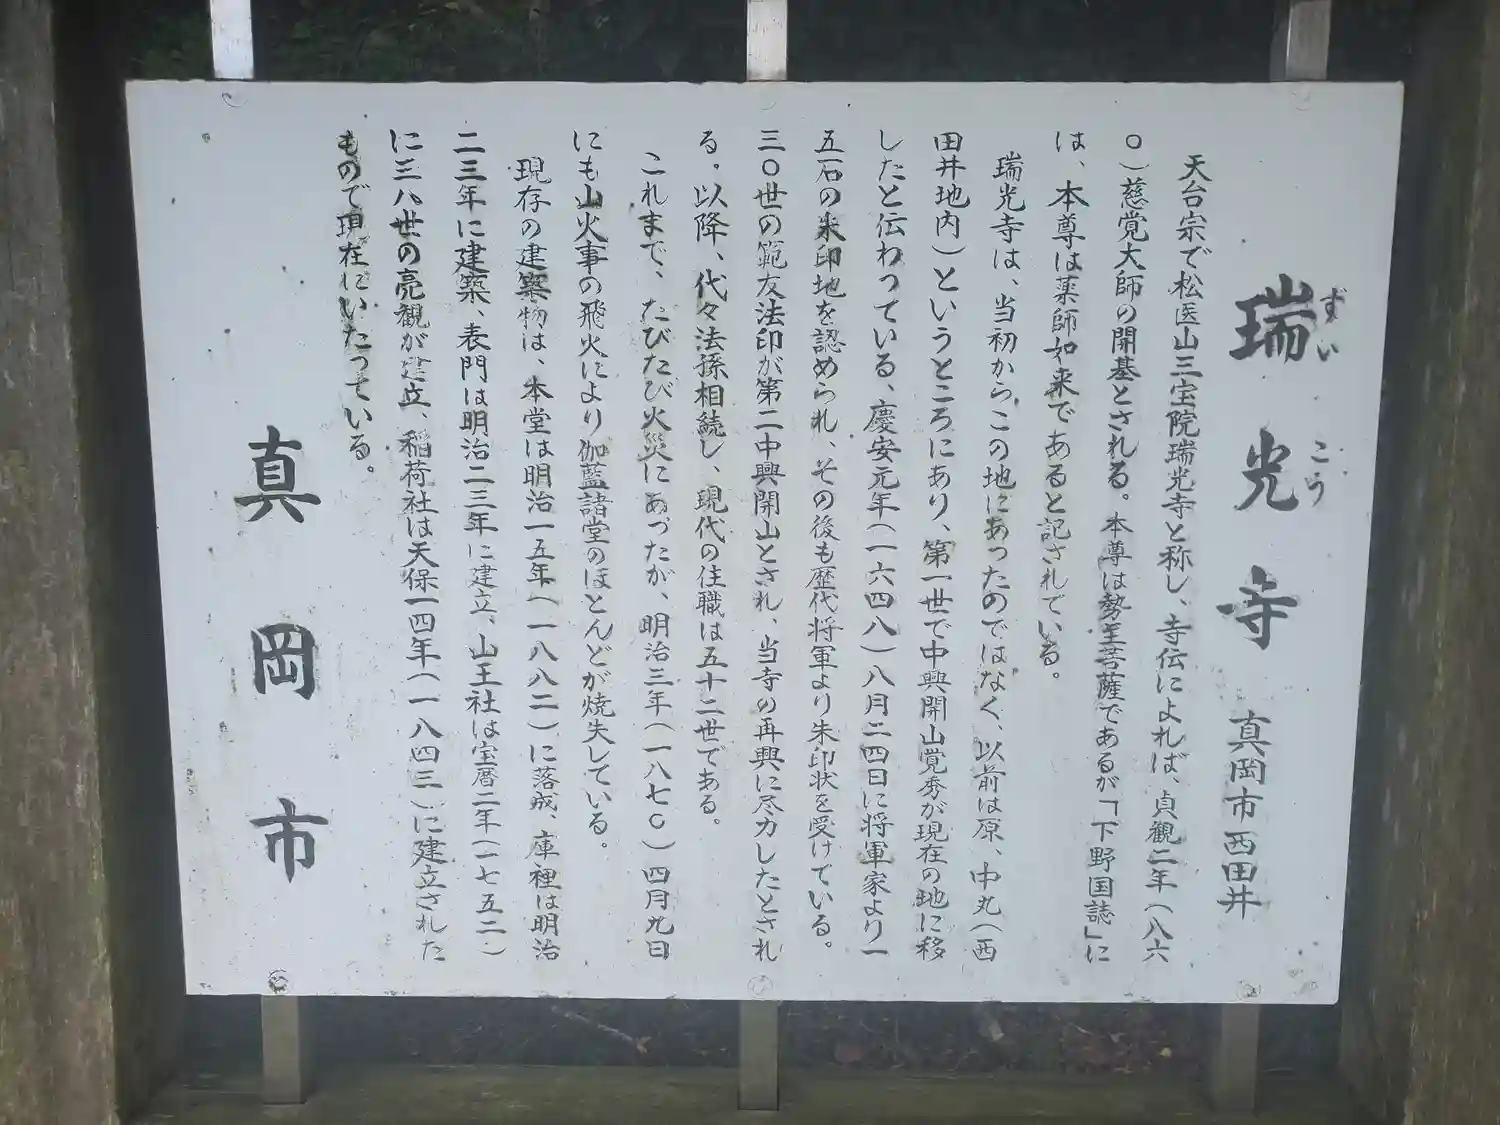 瑞光寺 真岡市西田井
ずいこう
天台宗で松医山三宝院瑞光寺と称し、寺伝によれば、貞観二年(八六
〇)慈覚大師の開基とされる。本尊は勢至菩薩であるが「下野国誌」に
は、本尊は薬師如来であると記されている。
瑞光寺は、当初からこの地にあったのではなく、以前は原、中丸(西
田井地内)というところにあり、第一世で中興開山覚秀が現在の地に移
したと伝わっている、慶安元年(一六四八)八月二四日に将軍家より一
五石の朱印地を認められ、その後も歴代将軍より朱印状を受けている。
三〇世の範友法印が第二中興開山とされ、当寺の再興に尽力したとされ
る。以降、代々法孫相続し、現代の住職は五十二世である。
これまで、たびたび火災にあったが、明治三年(一八七〇)四月九日
にも山火事の飛火により伽藍諸堂のほとんどが焼失している。
現存の建築物は、本堂は明治一五年(一八八二)に落成、庫裡は明治
二三年に建築、表門は明治二三年に建立、山王社は宝暦二年(一七五二)
に三八世の亮観が建立、稲荷社は天保一四年(一八四三)に建立された
もので現在にいたっている。
真岡市